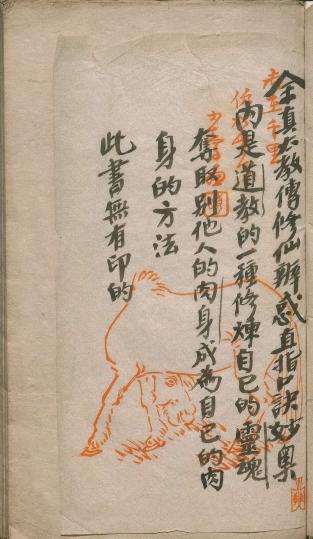 全真教傳修仙辨惑直指口訣妙奧
內是道教的一種修煉自已的靈魂
奪取別他人的肉身成為自已的肉
身的方法
此書無有印的